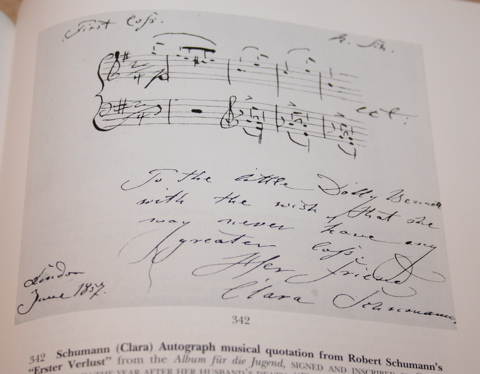 First loss.
R. Sch.
cct.
To the little Dolly Bennett
with the wish, that she
may never have any
greater loss.
Her friend
Clara Schumann.
London
June 1857.
342
342 Schumann (Clara) Autograph musical quotation from Robert Schumann's
"Erster Verlust" from the Album für die Jugend, SIGNED AND INSCRIBED
THE YEAR AFTER HER HUSBAND'S